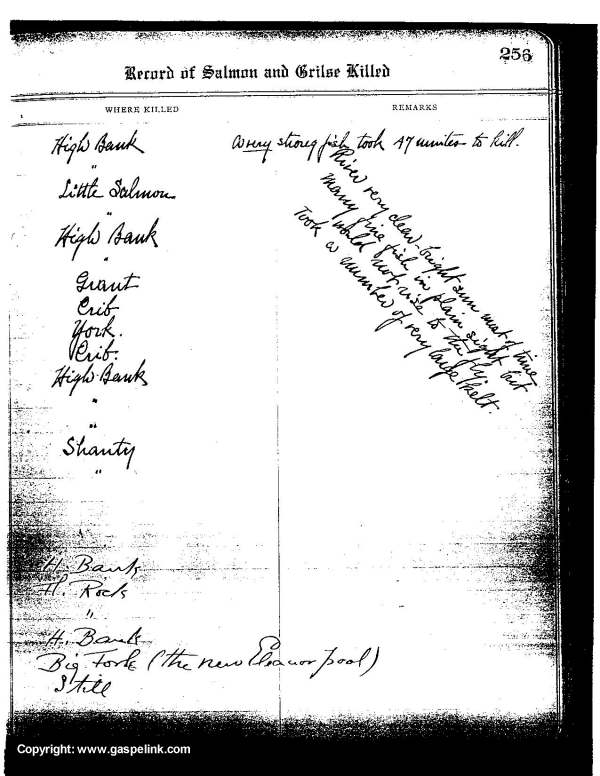 256
Record of Salmon and Grilse Killed
WHERE KILLED
REMARKS
High Bank
A very strong fish took 47 minutes to kill.
"
Little Salmon
"
High Bank
"
Grant
Crib
York.
Crib.
High Bank
"
"
Shanty
"
River very clear - bright sun most of time
Many fine fish in plain sight but
would not rise to the fly.
Took a number of very large Kelt.
H. Bank
H. Rock
"
H. Bank
Big Fork (the new Eleanor pool)
Still
Copyright: www.gaspelink.com